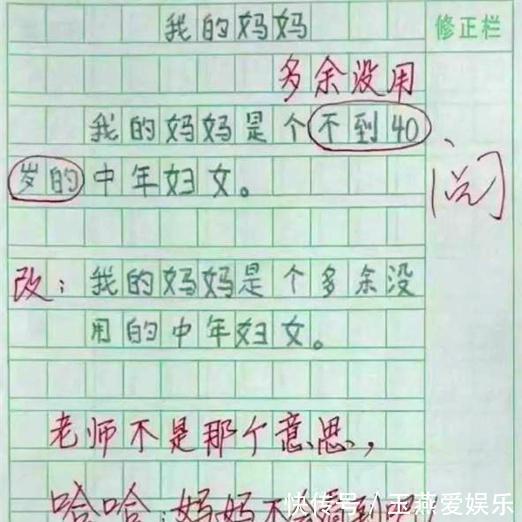 我的妈妈
修正栏
多余没用
我的妈妈是个不到40
岁的中年妇女。
阅
改：我的妈妈是个多余没
用的中年妇女。
老师不是那个意思，
哈哈，妈妈不会
快传号／王燕爱娱乐